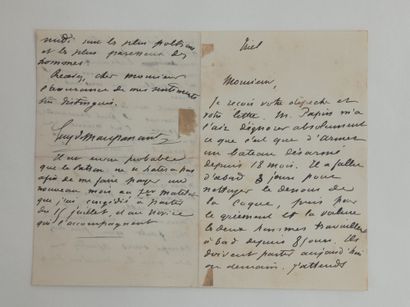 midi sont les plus poltrons
et les plus paresseux des
hommes.
Recevez, cher monsieur
l'assurance de mes sentiments
très distingués.
Guy de Maupassant
Il est encore probable
que le patron ne
afin de me faire payer un
nouveau mois au 1er matelot
que j'ai congédié à partir
du 15 juillet, et au novice
qui l'accompagnent
Triel
Monsieur,
Je reçois votre dépêche et
votre lettre. M. Papin m'a
l'air d'ignorer absolument
ce que c'est que d'armer
un bateau désarmé
depuis 18 mois. Il a fallu
d'abord 8 jours pour
nettoyer le dessous de
la coque, puis pour
le gréement et la voilure
les deux hommes travaillent
à bord depuis 8 jours. Ils
doivent partir aujourd'hui
ou demain. J'attends